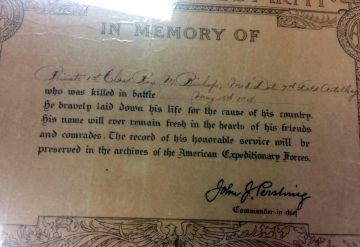 IN MEMORY OF
Private 1st Class M. Bishop, Med. Det. 7th Field Artillery
who was killed in battle
He bravely laid down his life for the cause of his country.
His name will ever remain fresh in the hearts of his friends
and comrades. The record of his honorable service will be
preserved in the archives of the American Expeditionary Forces.
John J. Pershing
Commander-in-chief